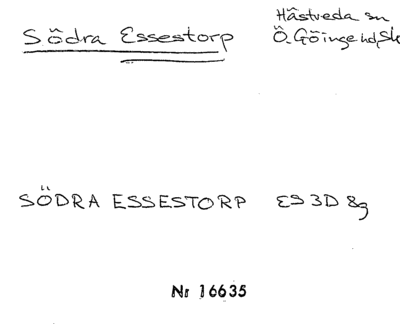 Södra Essestorp
Hästveda sn
Ö. Göinge hd, Sk
SÖDRA ESSESTORP ES 3D 8g
Nr 16635